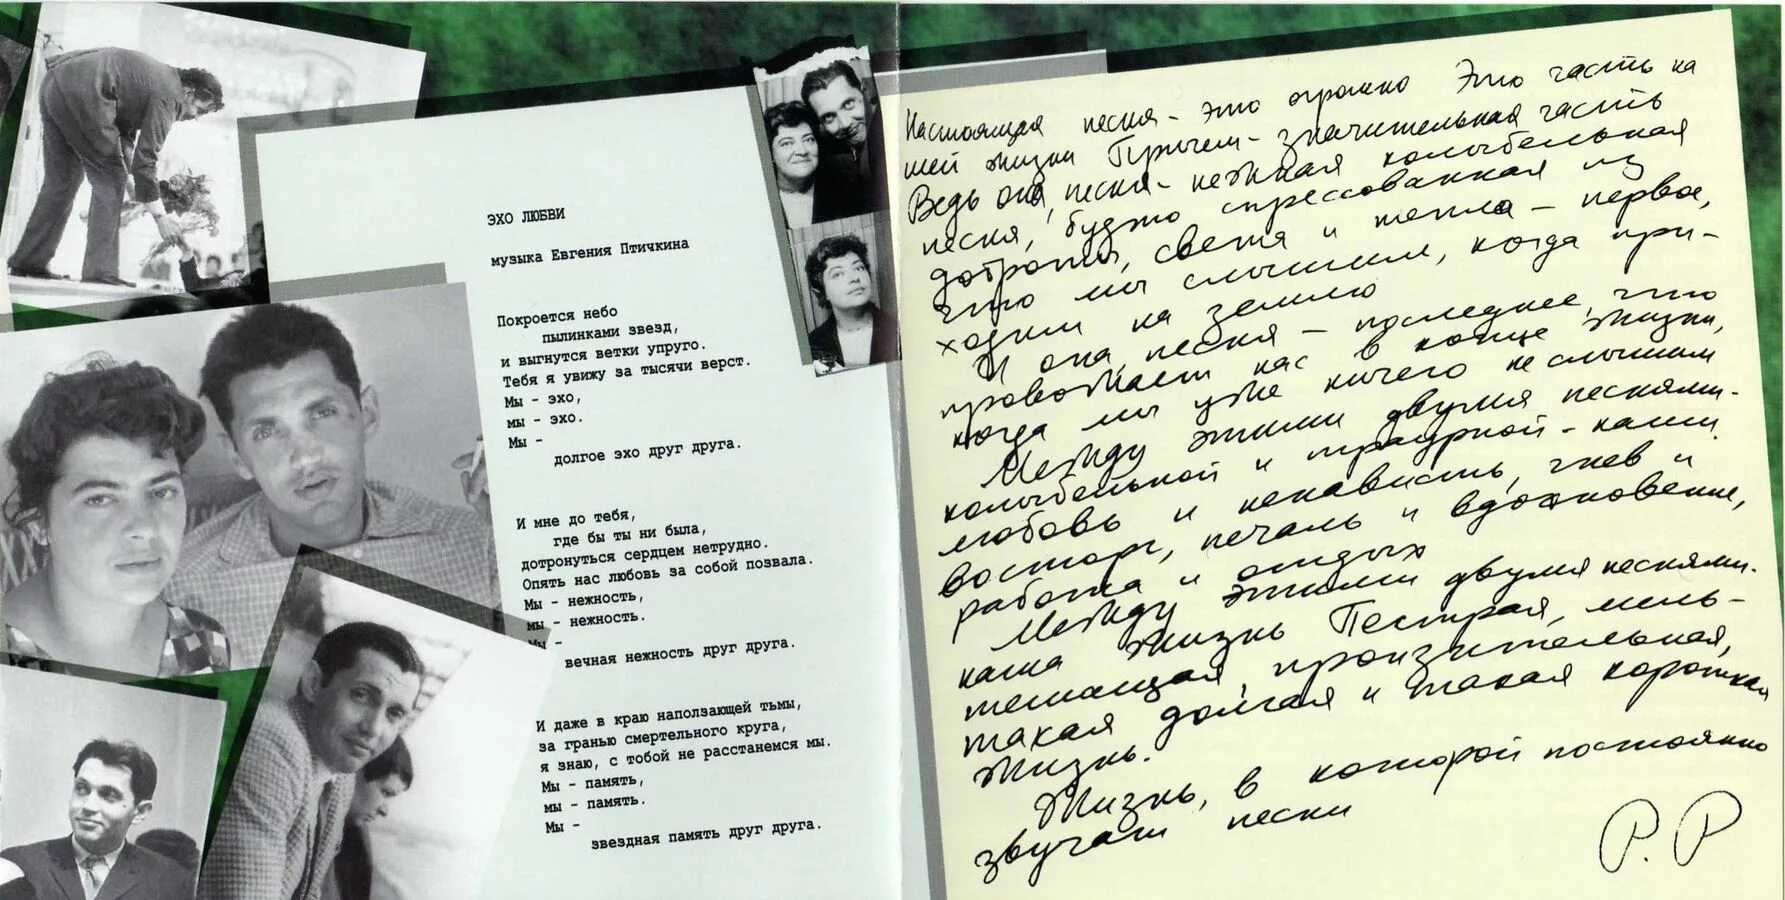 ЭХО ЛЮБВИ
музыка Евгения Птичкина
Покроется небо
пылинками звезд,
и выгнутся ветки упруго.
Тебя я увижу за тысячи верст.
Мы - эхо,
мы - эхо.
Мы -
долгое эхо друг друга.
И мне до тебя,
где бы ты ни была,
дотронуться сердцем нетрудно.
Опять нас любовь за собой позвала.
Мы - нежность,
мы - нежность.
Мы -
вечная нежность друг друга.
И даже в краю наползающей тьмы,
за гранью смертельного круга,
я знаю, с тобой не расстанемся мы.
Мы - память,
мы - память.
Мы -
звездная память друг друга.
Настоящая песня - это огромно Это часть на
шей жизни Причем - значительная часть
Ведь она, песня - нежная колыбельная
песня, будто спрессованная из
доброты, света и тепла - первое,
что мы слышим, когда при-
ходим на землю
И она, песня - последнее, что
провожает нас в конце жизни,
когда мы уже ничего не слышим
Между этими двумя песнями -
колыбельной и траурной - наши
любовь и ненависть, гнев и
восторг, печаль и вдохновение,
работа и отдых
Между этими двумя песнями -
наша жизнь Пестрая, мель-
тешащая, произительная,
такая долгая и такая короткая
жизнь.
Жизнь, в которой постоянно
звучат песни
Р. Р